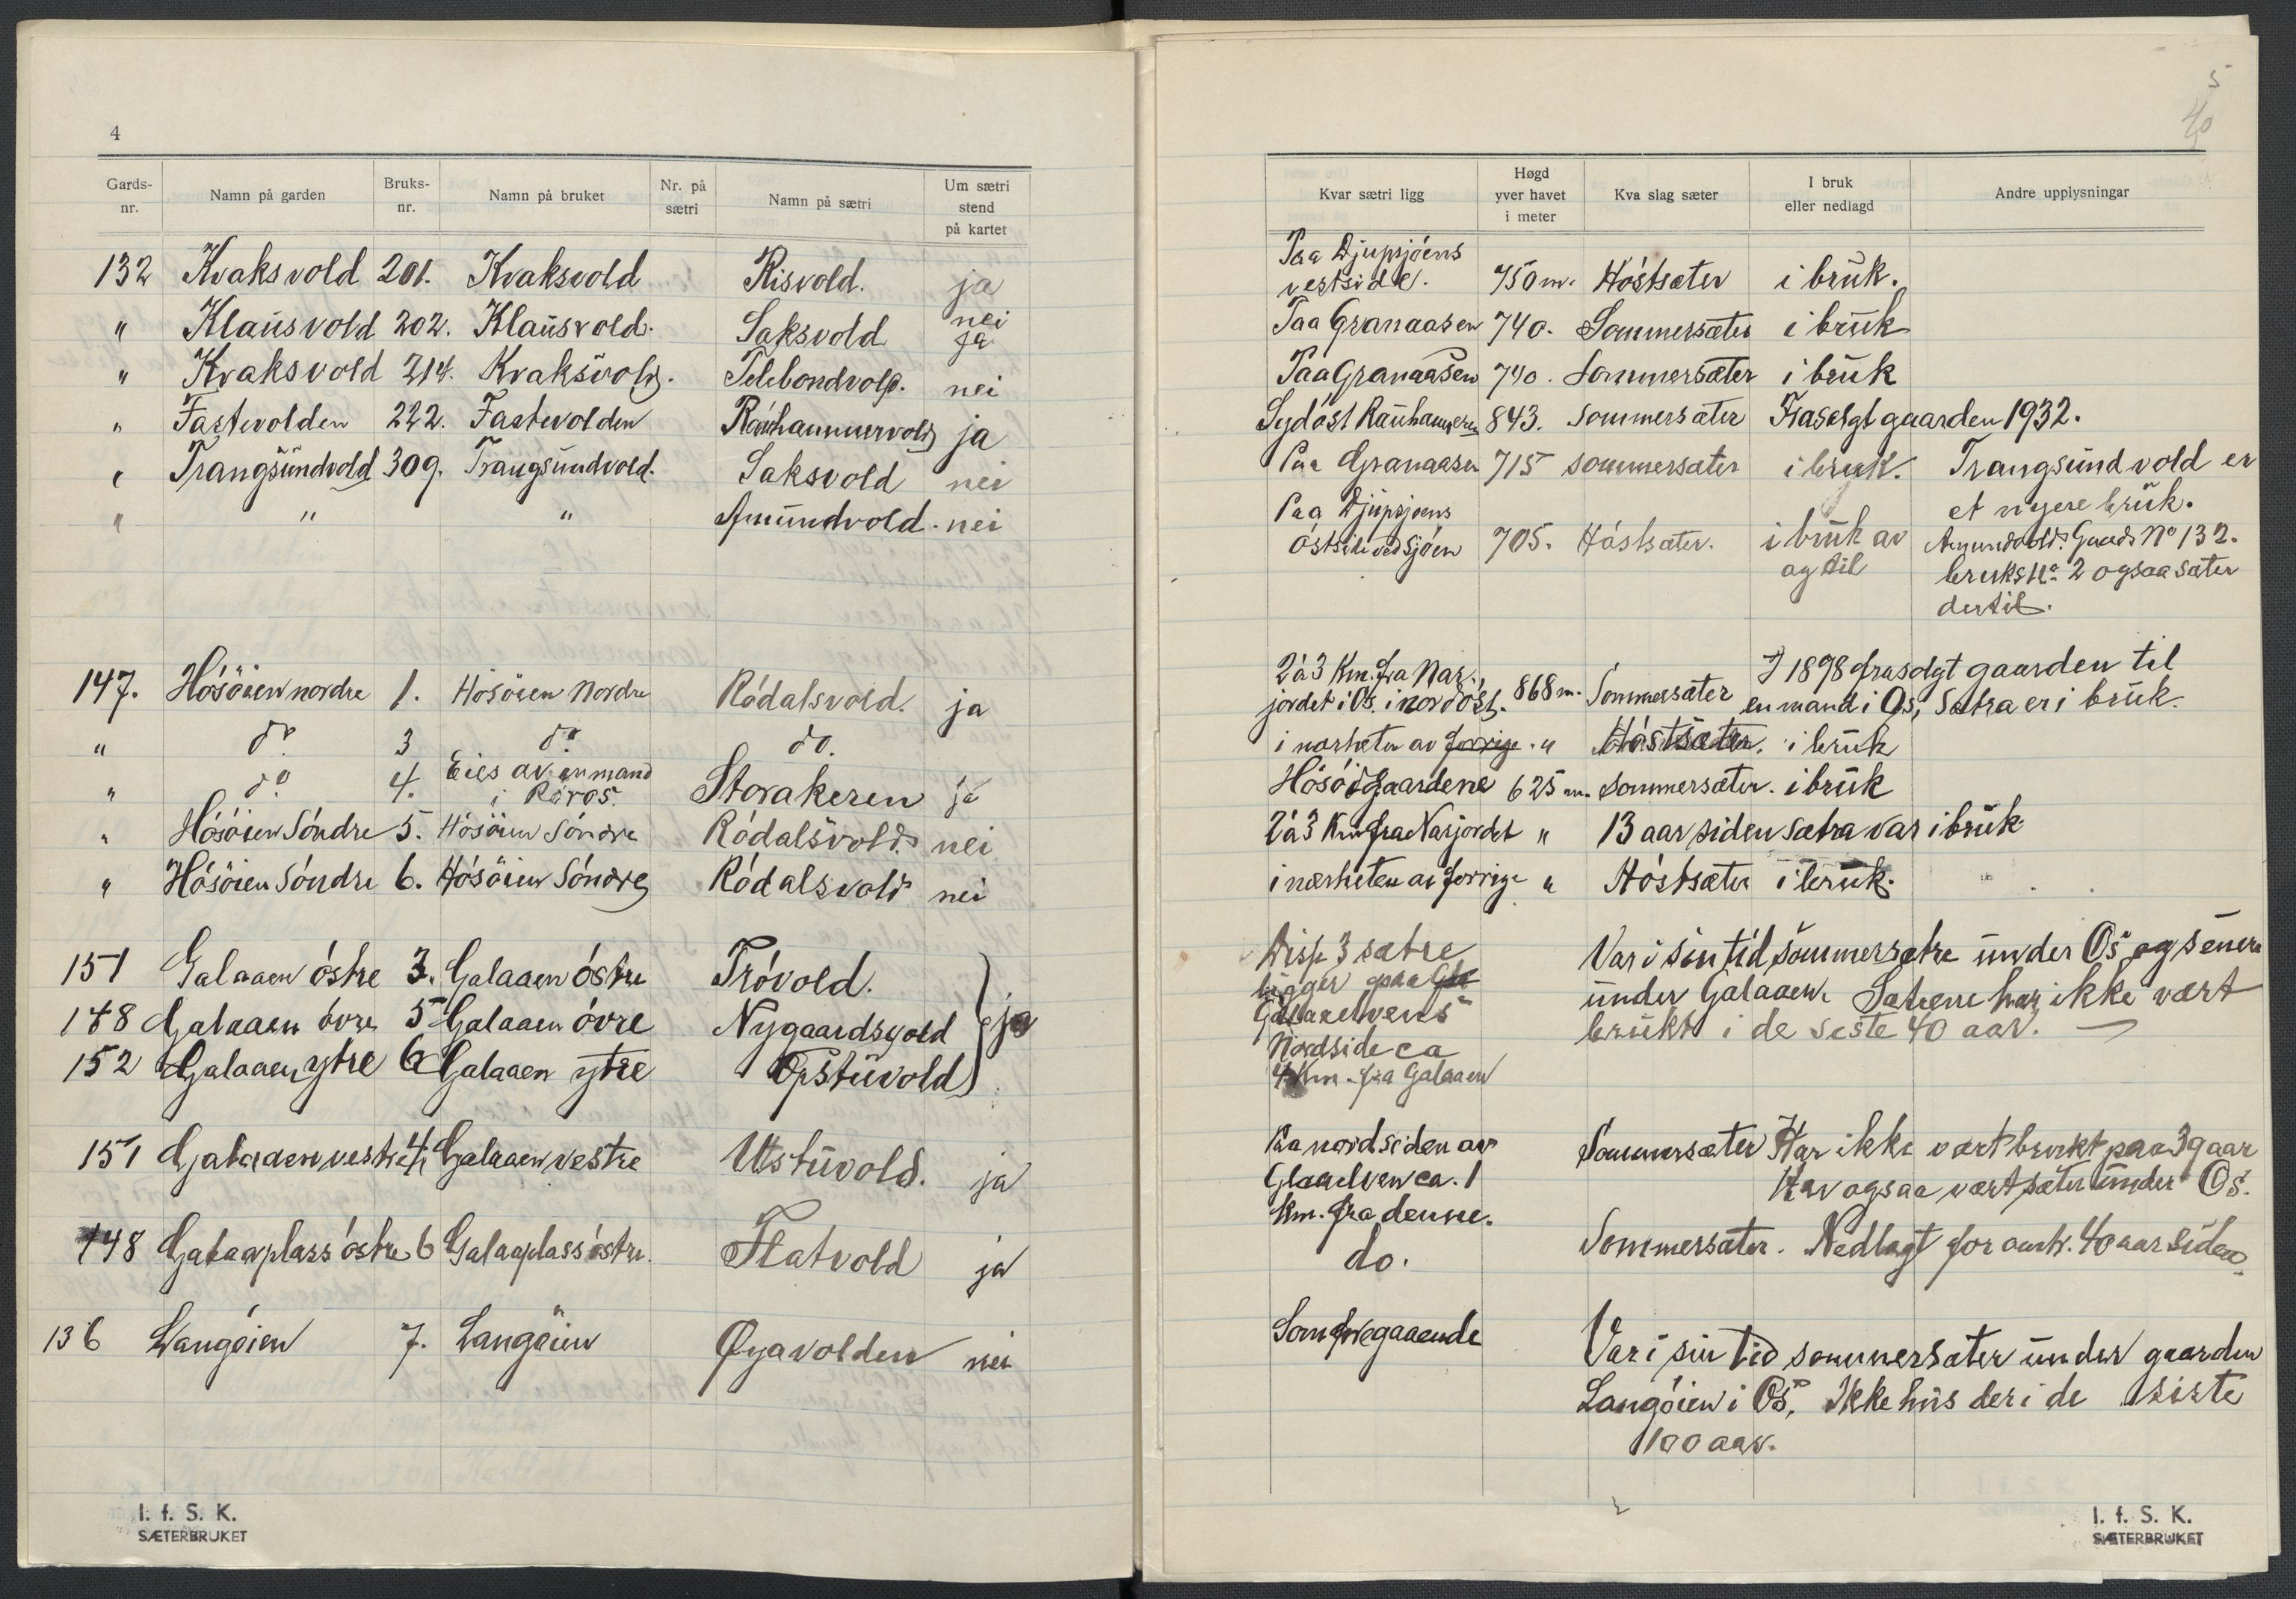 4
Gards-nr. Namn på garden Bruks-nr. Namn på bruket Nr. på sætri Namn på sætri Um sætri stend på kartet
132 Kvaksvold 201. Kvaksvold Risvold. ja
" Klausvold 202. Klausvold. Saksvold nei ja
" Kvaksvold 214. Kvaksvold. Telebondvold. nei
" Fastevolden 222. Fastevolden Rauhammervold ja
" Trangsundvold 309. Trangsundvold. Saksvold nei
" " " Amundvold. nei
147. Hósöien nordre 1. Hósöien Nordre Ródalsvold. ja
" do 3 do do.
" do 4. Eies av en mand i Röros. Storakeren ja
" Hósöien Söndre 5. Hósöien Söndre Ródalsvold. nei
" Hósöien Söndre 6. Hósöien Söndre Ródalsvold nei
151 Galaaen óstre 3. Galaaen óstre Tróvold.
148 Galaaen óvre 5 Galaaen óvre Nygaardsvold } ja
152 Galaaen ytre 6 Galaaen ytre Opstuvold
151 Galaaen vestre 4. Galaaen vestre Utstuvold. ja
148 Galaaplass óstre 6 Galaaplass óstre. Flatvold ja
136 Langóien 7. Langöien Øyavolden nei
I. f. S. K.
SÆTERBRUKET
5
40
Kvar sætri ligg Høgd yver havet i meter Kva slag sæter I bruk eller nedlagd Andre upplysningar
Paa Djupsjóens
vestside. 750 m. Hóstsæter i bruk.
Paa Granaasen 740. Sommersæter i bruk
Paa Granaasen 740. Sommersæter i bruk
Sydóst Rauhammeren 843. Sommersæter Frasolgt gaarden 1932.
Paa Granaasen 715 sommersæter i bruk. Trangsund vold er
et nyere bruk.
Paa Djupsjoens
óstside ved Sjóen 705. Hóstsæter. i bruk av Amundvold. Gaards No 132.
og til bruks No 2 ogsaa sæter
dertil.
2 à 3 Km. fra Nar- I 1898 frasolgt gaarden til
jordet i Os. i nordóst. 868 m. Sommersæter en mand i Os, Sætra er i bruk.
i nærheten av forrige. " Hóstsæter. i bruk
Hósóigaardene 625 m. Sommersæter. i bruk
2 à 3 Km fra Narjordet " 13 aar siden sætra var i bruk
i nærheten av forrige " Hóstsæter i bruk.
Disse 3 sætre Var i sin tid sommersætre under Os og senere
ligger paa
Galaaelvens under Galaaen. Sætrene har ikke vært
Nordside ca brukt i de siste 40 aar.
4 Km. fra Galaaen
Paa nordsiden av Sommersæter Har ikke vært brukt paa 39 aar
Glaaelven ca. 1 Har ogsaa vært sæter under Os.
Km. fra denne.
do. Sommersæter. Nedlagt for omtr. 40 aar siden.
Som foregaaende Var i sin tid sommersæter under gaarden
Langóien i Os, Ikke hus der i de siste
100 aar.
I. f. S. K.
SÆTERBRUKET